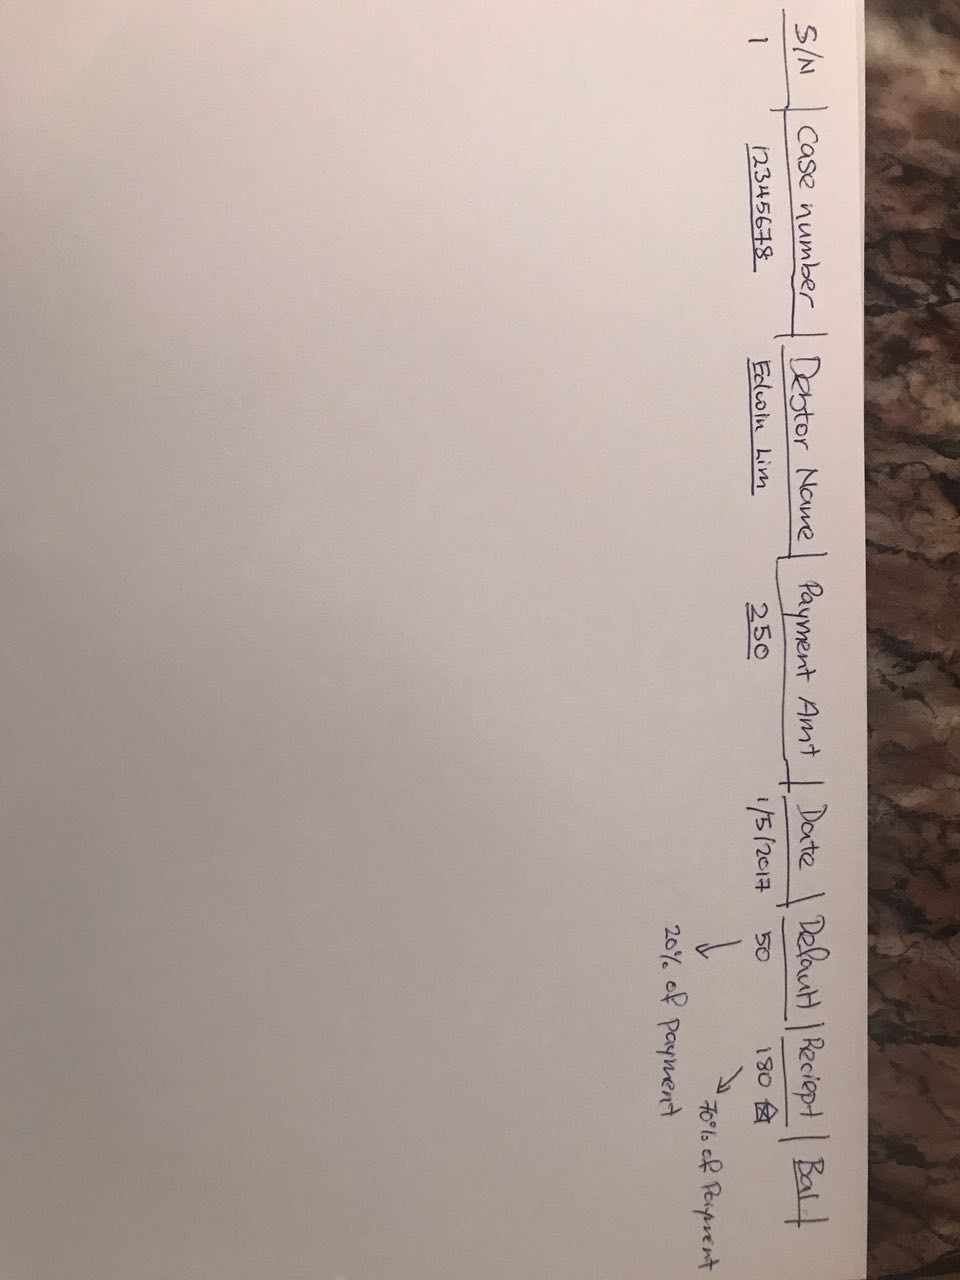 S/N | Case number | Debtor Name | Payment Amt | Date | Default | Reciept | Bal
1 12345678 Edwin Lim 250 1/5/2017 50 180
70% of Payment
20% of payment